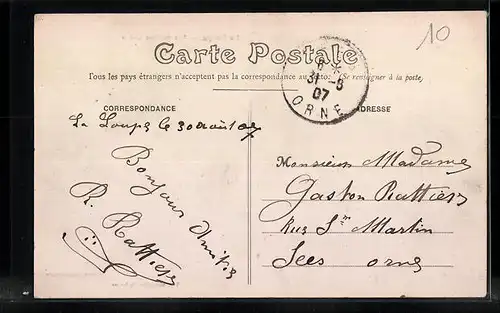 10
Carte Postale
Tous les pays étrangers n'acceptent pas la correspondance au (Se renseigner à la poste)
8 *
31 - 8
07
ORNE
CORRESPONDANCE
ADRESSE
La Loupe le 30 août 07
Bonjour Amitiés
R. Rattier
Monsieur Madame
Gaston Rattier
Rue St Martin
Sées Orne